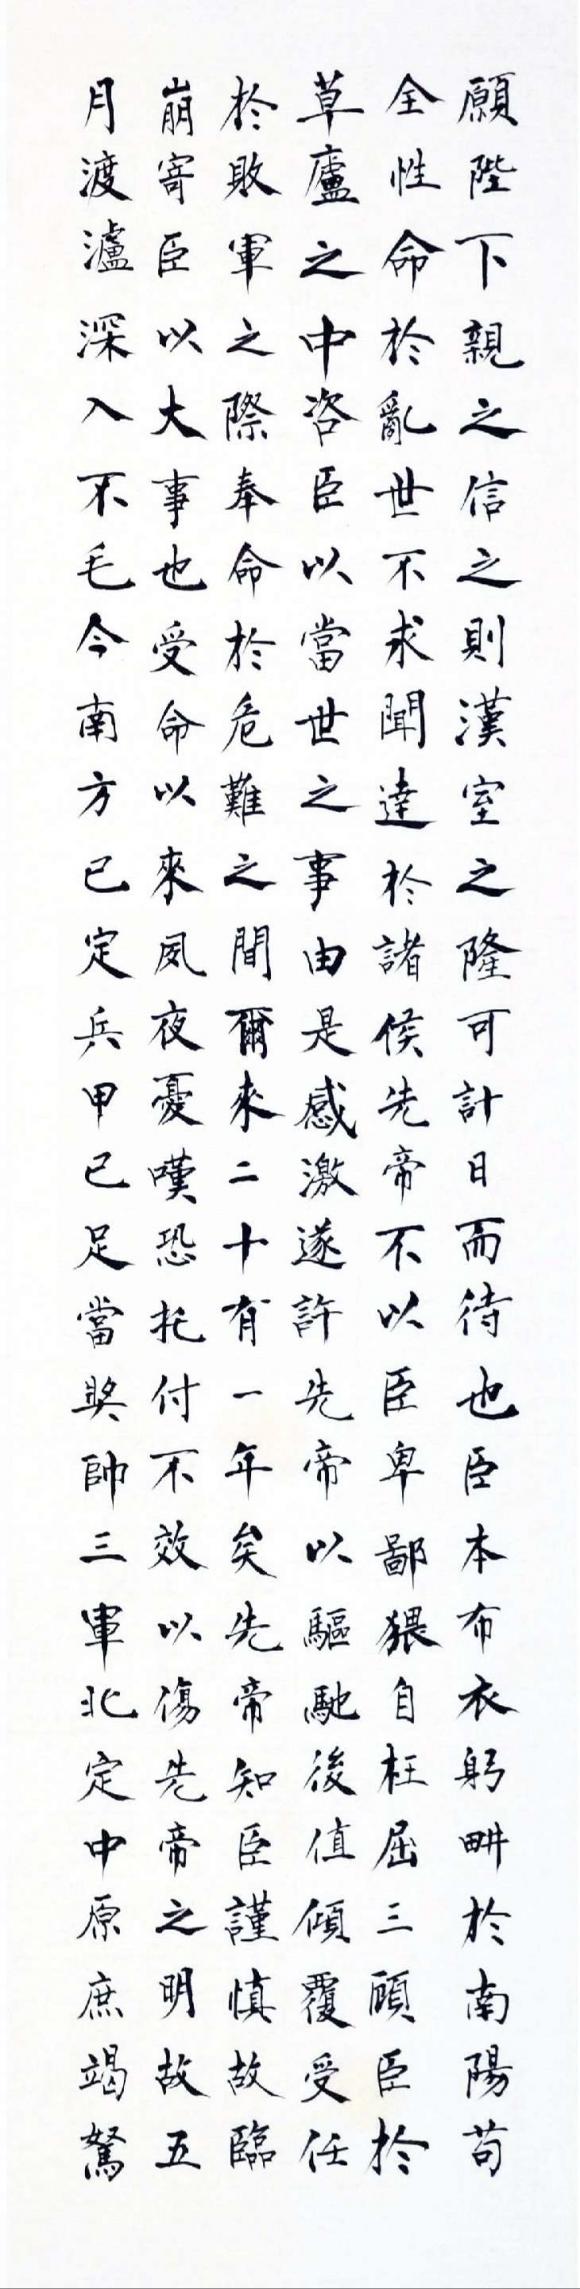 願陛下親之信之則漢室之隆可計日而待也臣本布衣躬畊於南陽苟
全性命於亂世不求聞達於諸侯先帝不以臣卑鄙猥自枉屈三顧臣於
草廬之中咨臣以當世之事由是感激遂許先帝以驅馳後值傾覆受任
於敗軍之際奉命於危難之間爾來二十有一年矣先帝知臣謹慎故臨
崩寄臣以大事也受命以來夙夜憂嘆恐托付不效以傷先帝之明故五
月渡瀘深入不毛今南方已定兵甲已足當奬帥三軍北定中原庶竭駑